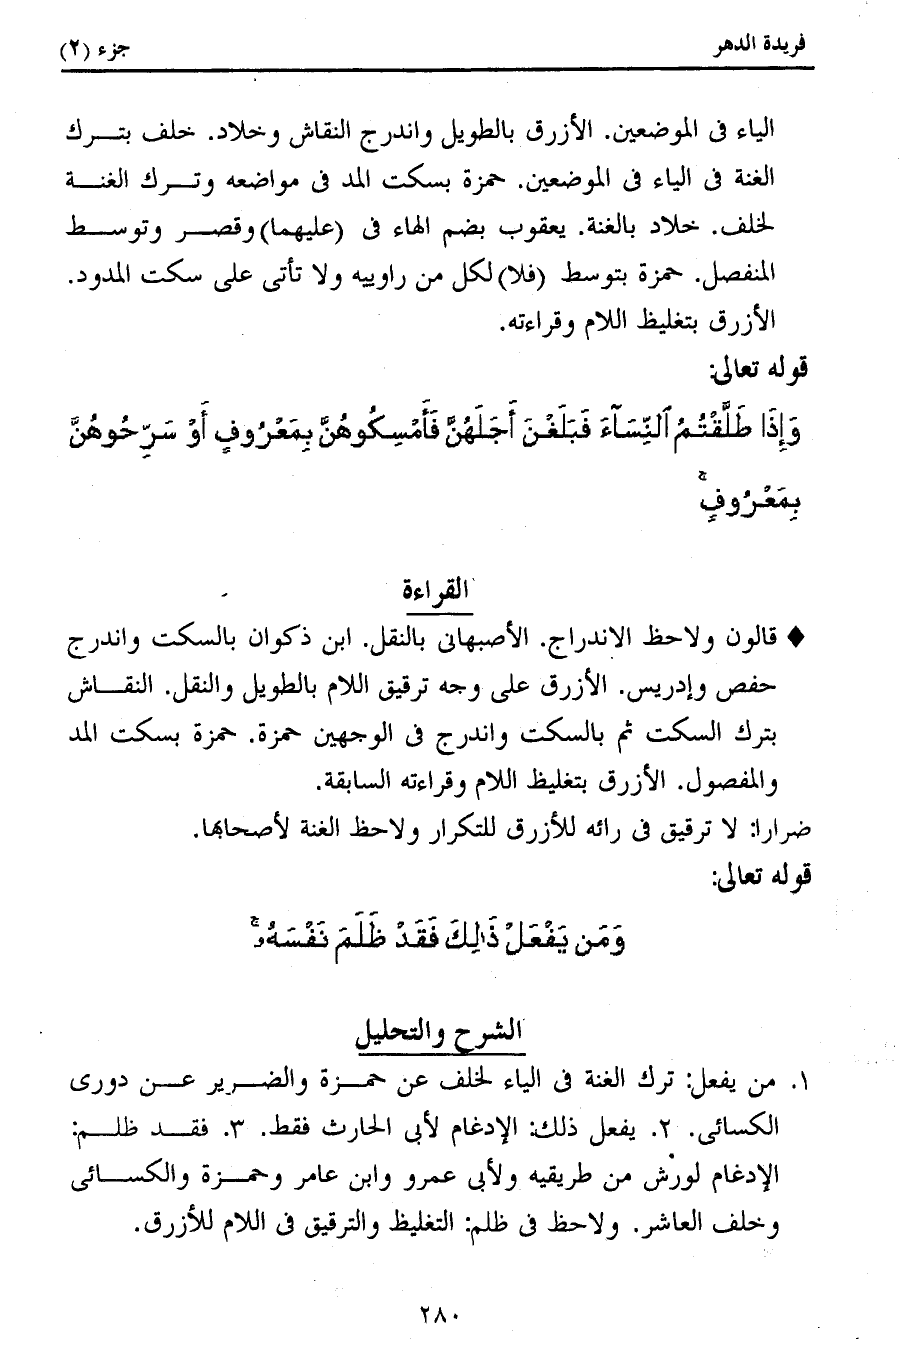 فريدة الدهر
جزء (٢)
الياء فى الموضعين. الأزرق بالطويل واندرج النقاش وخلاد. خلف بتــرك
الغنة فى الياء فى الموضعين. حمزة بسكت المد فى مواضعه وتــرك الغنــة
لخلف. خلاد بالغنة. يعقوب بضم الهاء فى (عليهما) وقصــر وتوســط
المنفصل. حمزة بتوسط (فلا) لكل من راوييه ولا تأتى على سكت المدود.
الأزرق بتغليظ اللام وقراءته.
قوله تعالى:
وَإِذَا طَلَّقْتُمُ ٱلنِّسَآءَ فَبَلَغْنَ أَجَلَهُنَّ فَأَمْسِكُوهُنَّ بِمَعْرُوفٍ أَوْ سَرِّحُوهُنَّ
بِمَعْرُوفٍۚ
القراءة
♦ قالون ولاحظ الاندراج. الأصبهانى بالنقل. ابن ذكوان بالسكت واندرج
حفص وإدريس. الأزرق على وجه ترقيق اللام بالطويل والنقل. النقــاش
بترك السكت ثم بالسكت واندرج فى الوجهين حمزة. حمزة بسكت المد
والمفصول. الأزرق بتغليظ اللام وقراءته السابقة.
ضرارا: لا ترقيق فى رائه للأزرق للتكرار ولاحظ الغنة لأصحابها.
قوله تعالى:
وَمَن يَفْعَلْ ذَٰلِكَ فَقَدْ ظَلَمَ نَفْسَهُۥۚ
الشرح والتحليل
١. من يفعل: ترك الغنة فى الياء لخلف عن حمــزة والضــرير عــن دورى
الكسائى. ٢. يفعل ذلك: الإدغام لأبى الحارث فقط. ٣. فقــد ظلــم:
الإدغام لورش من طريقيه ولأبى عمرو وابن عامر وحمــزة والكســائى
وخلف العاشر. ولاحظ فى ظلم: التغليظ والترقيق فى اللام للأزرق.
٢٨٠